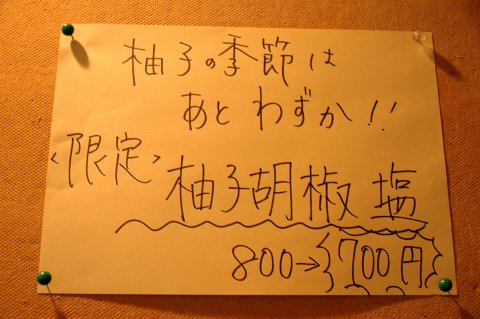 柚子の季節は
あとわずか!!
<限定>
柚子胡椒塩
800→700円